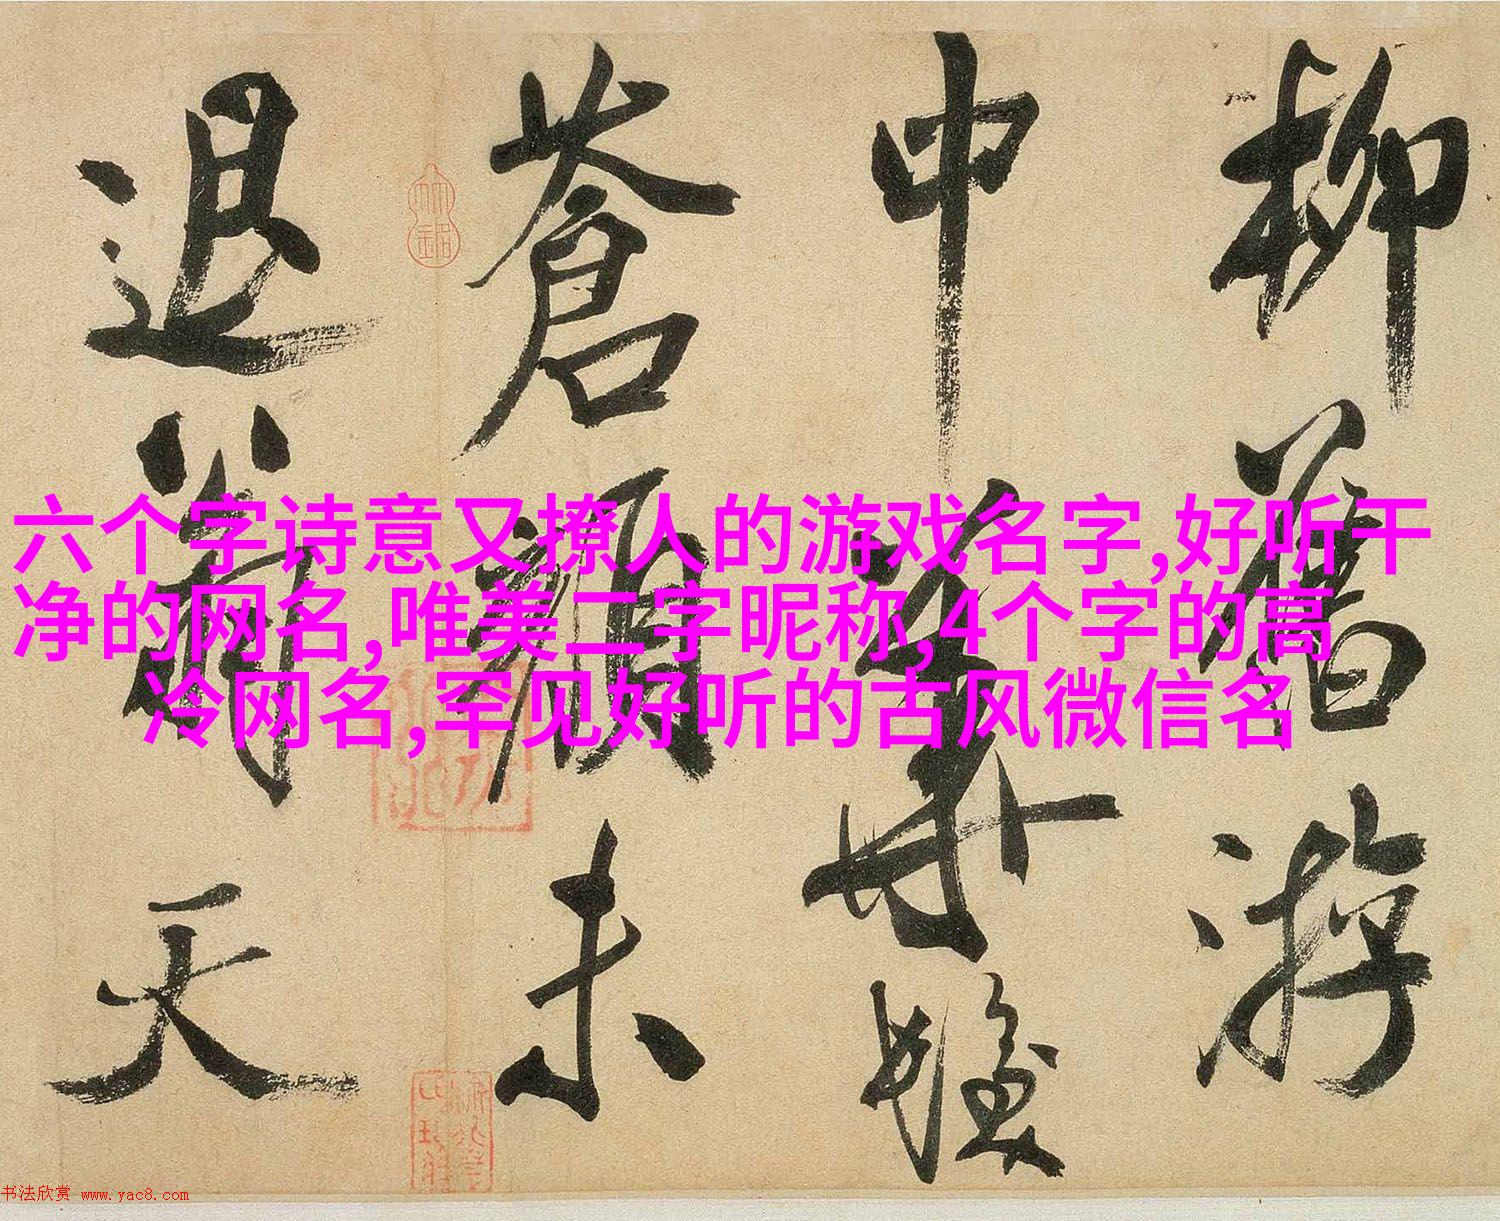 柳舊游
中華髮
蒼顏未
退茼天
六个字诗意又撩人的游戏名字,好听干
净的网名,唯美二字昵称,4个字的高
冷网名,罕见好听的古风微信名
书法欣赏 www.yac8.com